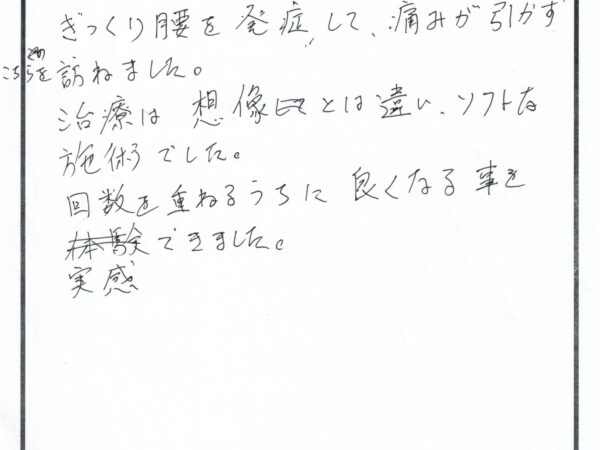 ぎっくり腰を発症して、痛みが引かず
こちらを訪ねました。
治療は想像とは違い、ソフトな
施術でした。
回数を重ねるうちに良くなる事を
体験できました。
実感